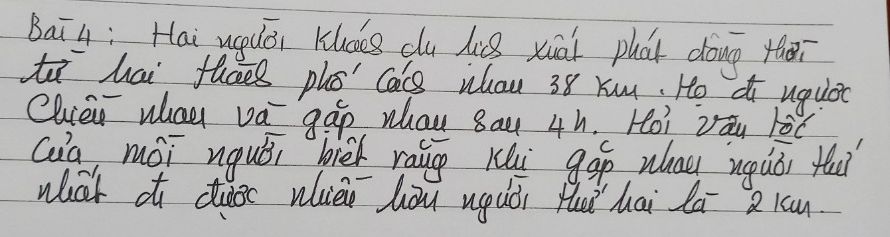 Bài 4: Hai người khách du lịch xuất phát đồng thời
từ hai thành phố cách nhau 38 km. Họ đi ngược
chiều nhau và gặp nhau sau 4h. Hỏi vận tốc
của mỗi người biết rằng khi gặp nhau người thứ
nhất đi được nhiều hơn người thứ hai là 2 km.